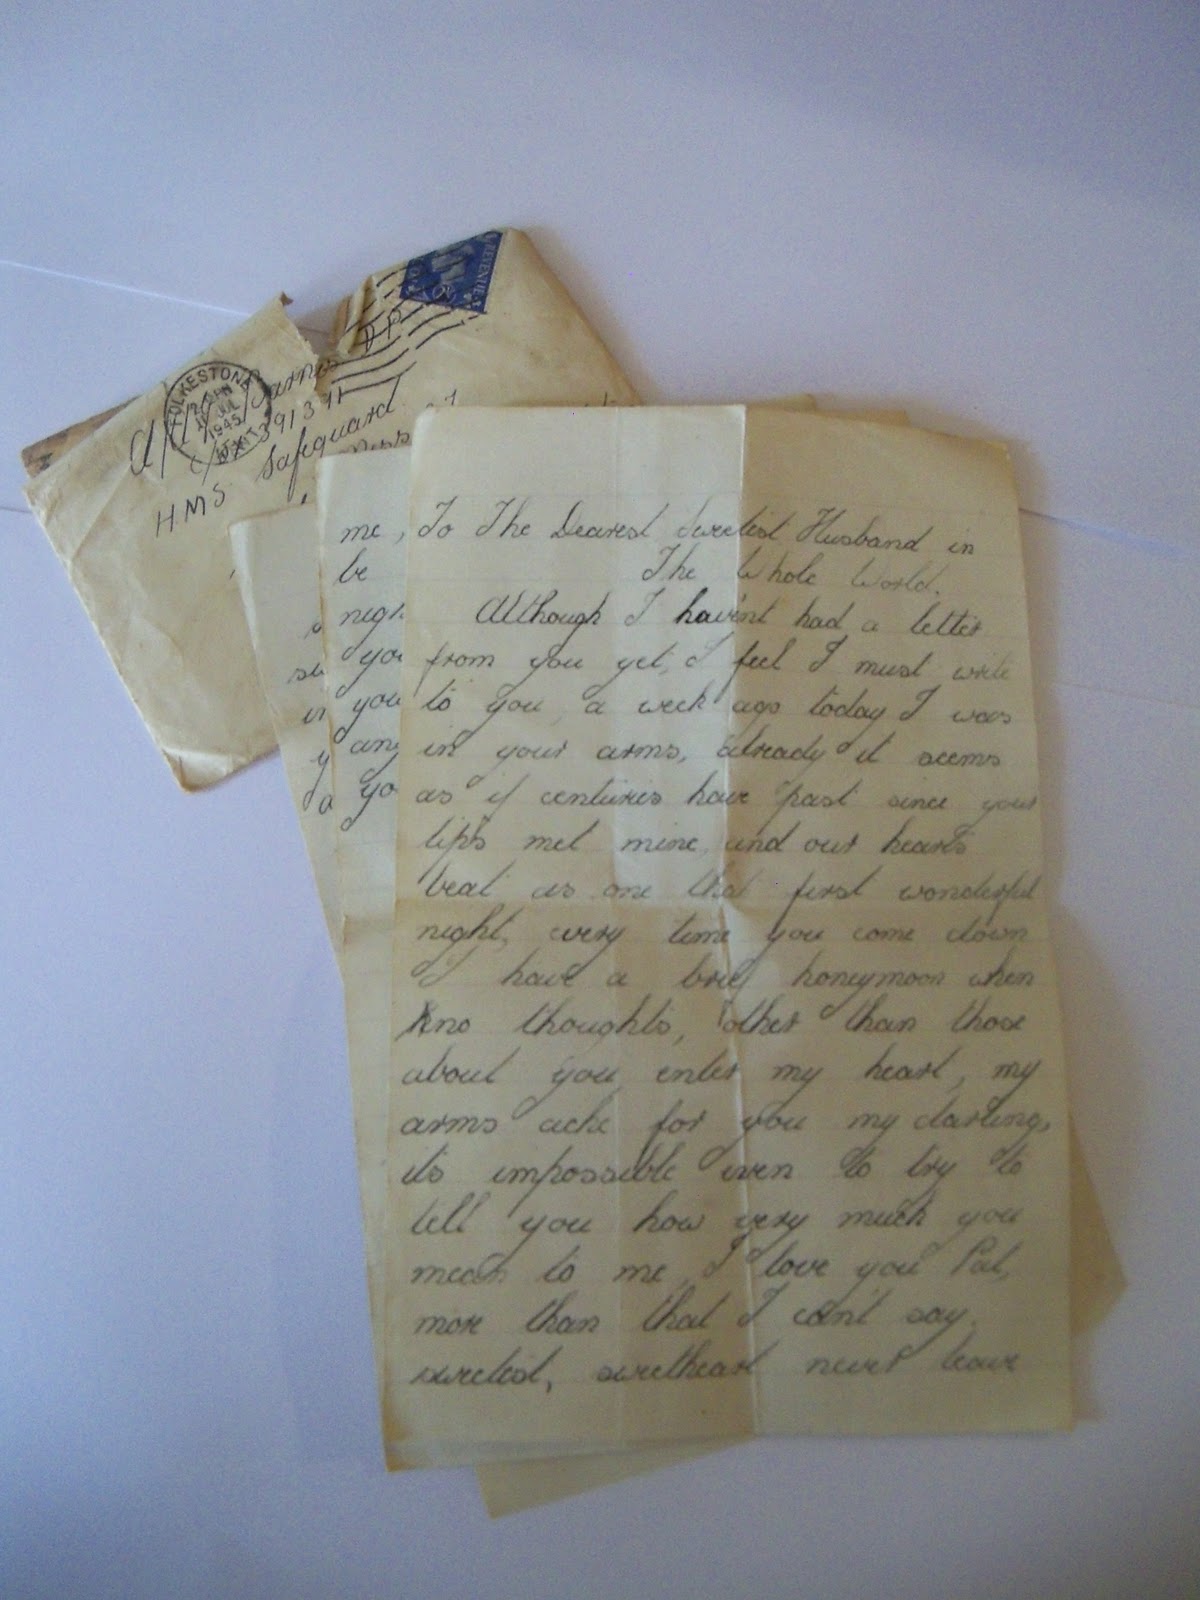 FOLKESTONE
JUL
1945
KENT
REVENUE
Barnes D P
C/JX 391391
HMS Safeguard
me,
be
you
you
To The Dearest Sweetest Husband in
The Whole World.
Although I haven't had a letter
from you yet, I feel I must write
to you, a week ago today I was
in your arms, already it seems
as if centuries have past since your
lips met mine and our hearts
beat as one that first wonderful
night, every time you come down
I have a brief honeymoon when
no thoughts, other than those
about you enter my heart, my
arms ache for you my darling,
its impossible even to try to
tell you how very much you
mean to me, I love you Pat,
more than that I can't say.
sweetest, sweetheart never leave